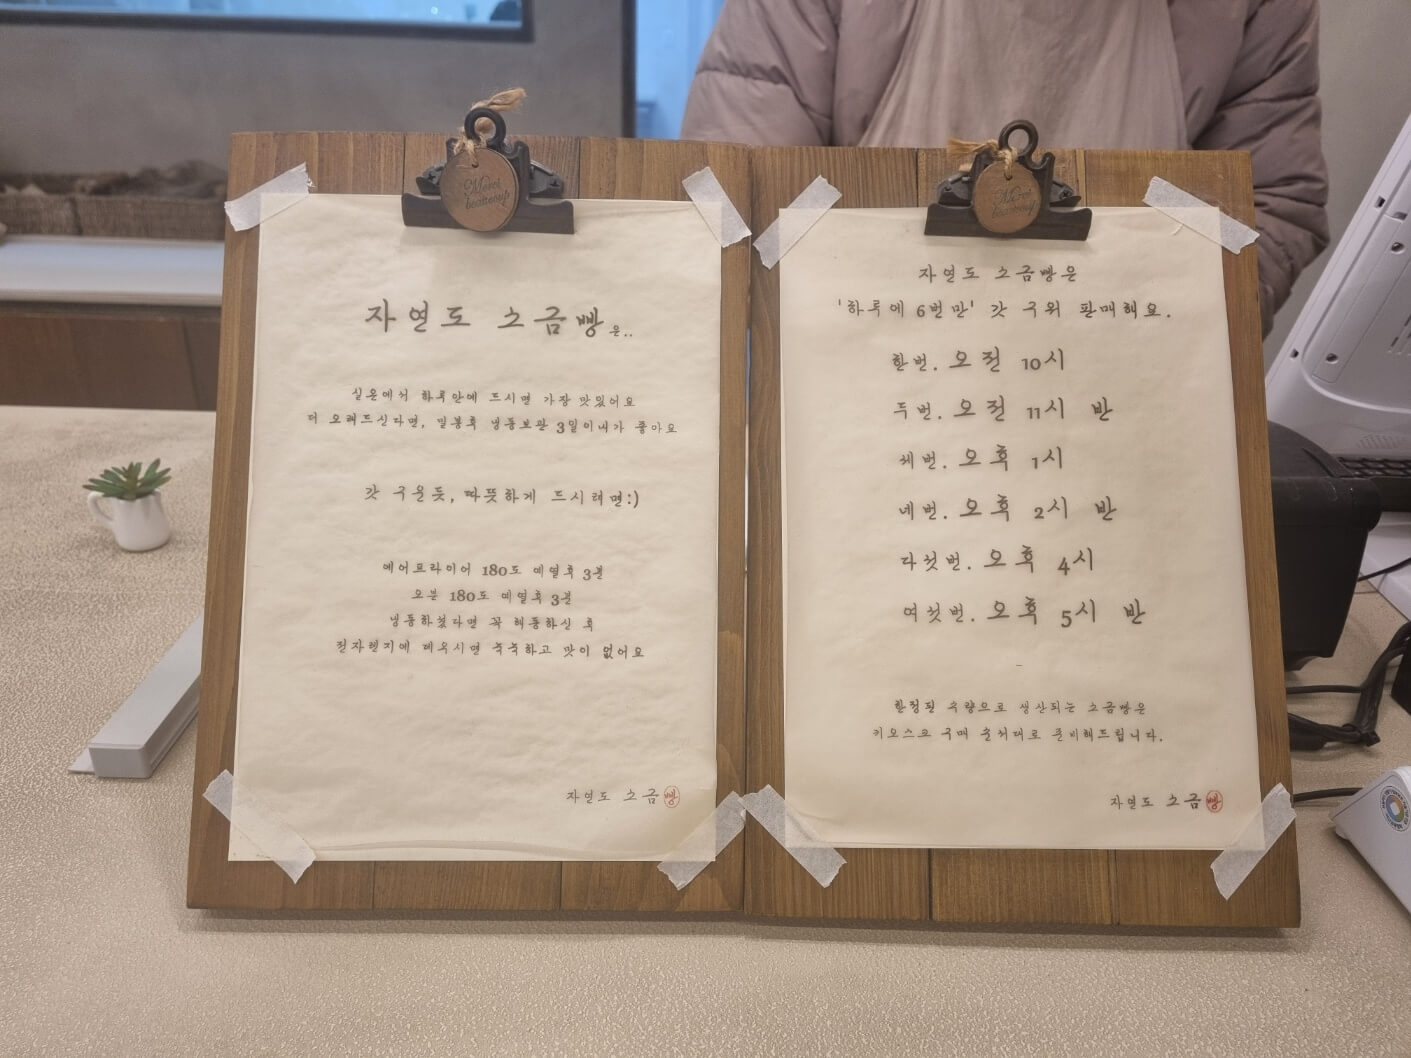 Merci
beaucoup
자연도 소금빵은..
실온에서 하루안에 드시면 가장 맛있어요
더 오래드신다면, 밀봉후 냉동보관 3일이내가 좋아요
갓 구운듯, 따뜻하게 드시려면:)
에어프라이어 180도 예열후 3분
오븐 180도 예열후 3분
냉동하셨다면 꼭 해동하신 후
전자렌지에 데우시면 축축하고 맛이 없어요
자연도 소금빵
Merci
beaucoup
자연도 소금빵은
'하루에 6번만' 갓 구워 판매해요.
한번. 오전 10시
두번. 오전 11시 반
세번. 오후 1시
네번. 오후 2시 반
다섯번. 오후 4시
여섯번. 오후 5시 반
한정된 수량으로 생산되는 소금빵은
키오스크 구매 순서대로 준비해드립니다.
자연도 소금빵